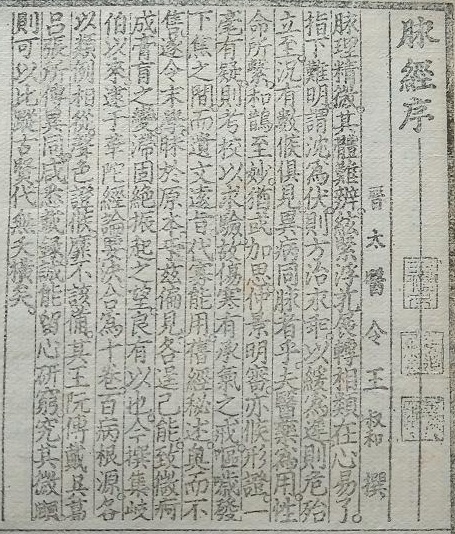 脉經序
晉太醫令王叔和撰
脉理精微。其體難辨。絃緊浮芤。展轉相類。在心易了。
指下難明。謂沈為伏。則方治永乖。以緩為遲。則危殆
立至。況有數候俱見。異病同脉者乎。夫醫藥為用。性
命所繫。和鵲至妙。猶或加思。仲景明審。亦候形證。一
毫有疑。則考校以求驗。故傷寒有承氣之戒。嘔噦發
下焦之間。而遺文遠旨。代寡能用。舊經秘述。奧而不
售。遂令末學。昧於原本。斥茲偏見。各逞己能。致微痾
成膏肓之變。滯固絶振起之望。良有以也。今撰集岐
伯以來。逮于華陀。經論要訣。合為十卷。百病根源。各
以類例相從。聲色證候。靡不該備。其王阮傅戴吳葛
呂張。所傳異同。咸悉載録。誠能留心研窮。究其微賾。
則可以比蹤古賢。代無夭橫矣。